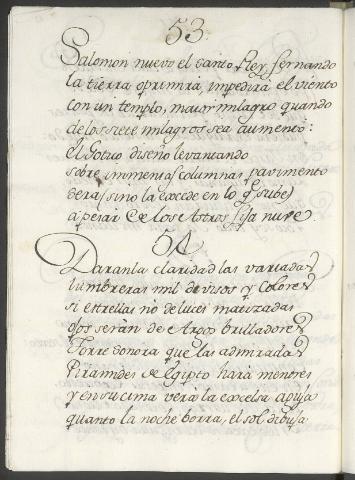 53.
Salomon nuevo el santo Rey fernando
la tierra oprimirà, impedirà el viento
con un templo, maior milagro quando
de los siete milagros sea aumento:
el Gotico diseño levantando
sobre inmensas columnas pavimento
verà (si no la excede en lo q sube)
a pesar de los Astros fixa nuve.
54.
Daranla claridad las variadas
lumbreras mil de visos y Colores
si estrellas no de luces matizadas
ojos seràn de Argos brilladores
Torre sonora que las admiradas
Piramides de Egipto harà menores
y en su cima verà la excelsa aguja
quanto la noche borra, el sol dibuja